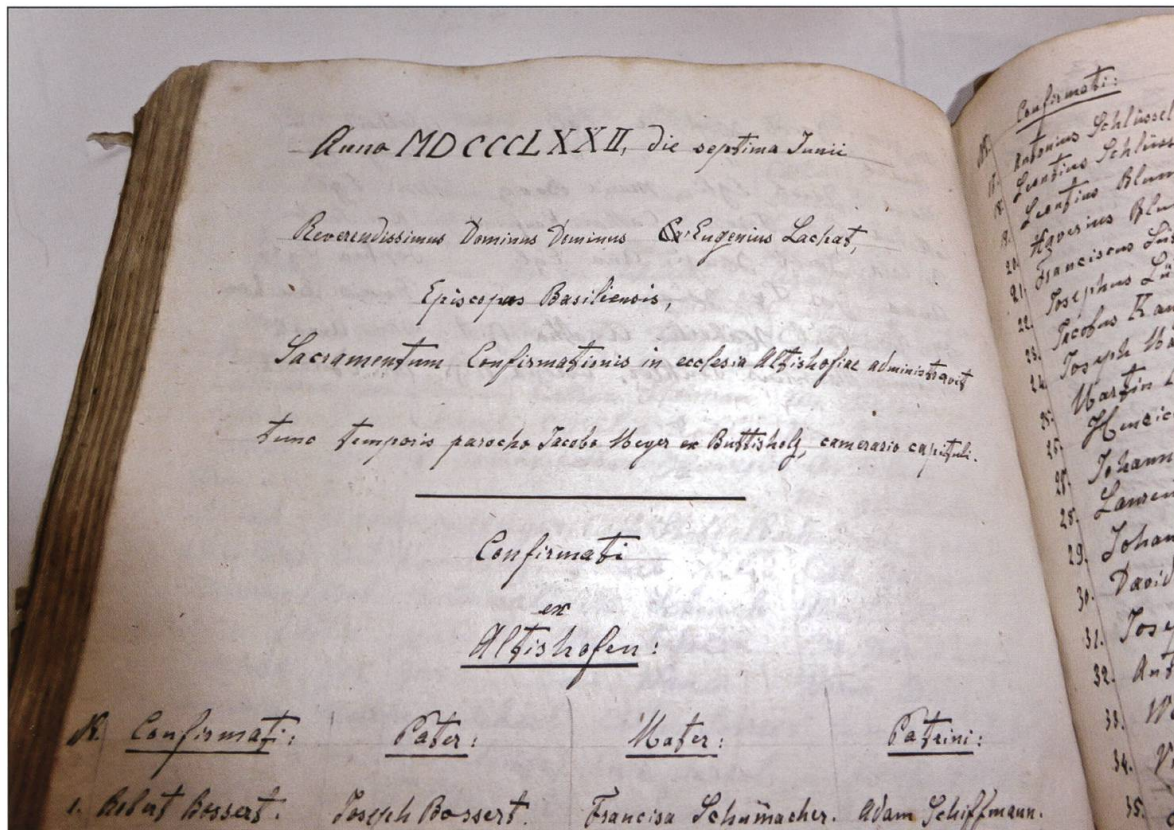 Anno MDCCCLXXII, die septima Junii
Reverendissimus Dominus Dominus Eugenius Lachat,
Episcopus Basiliensis,
Sacramentum Confirmationis in ecclesia Altishofiae administravit
tunc temporis parocho Jacobo Meyer ex Buttisholz, camerario capituli.
Confirmati
ex
Altishofen:
N. Confirmati: Pater: Mater: Patrini:
1. Robert Bossert. Joseph Bossert. Francisa Schümacher. Adam Schiffmann.
N. Confirmati:
17. Antonius Schlüssel
18. Leontius
19. Leontius Blum
20. Xaverius
21. Franciscus
22. Josephus
23. Jacobus
24. Joseph
25. Martin
26.
27. Johann
28.
29. Johan
30. David
31. Jose
32. Ant
33.
34.
35.